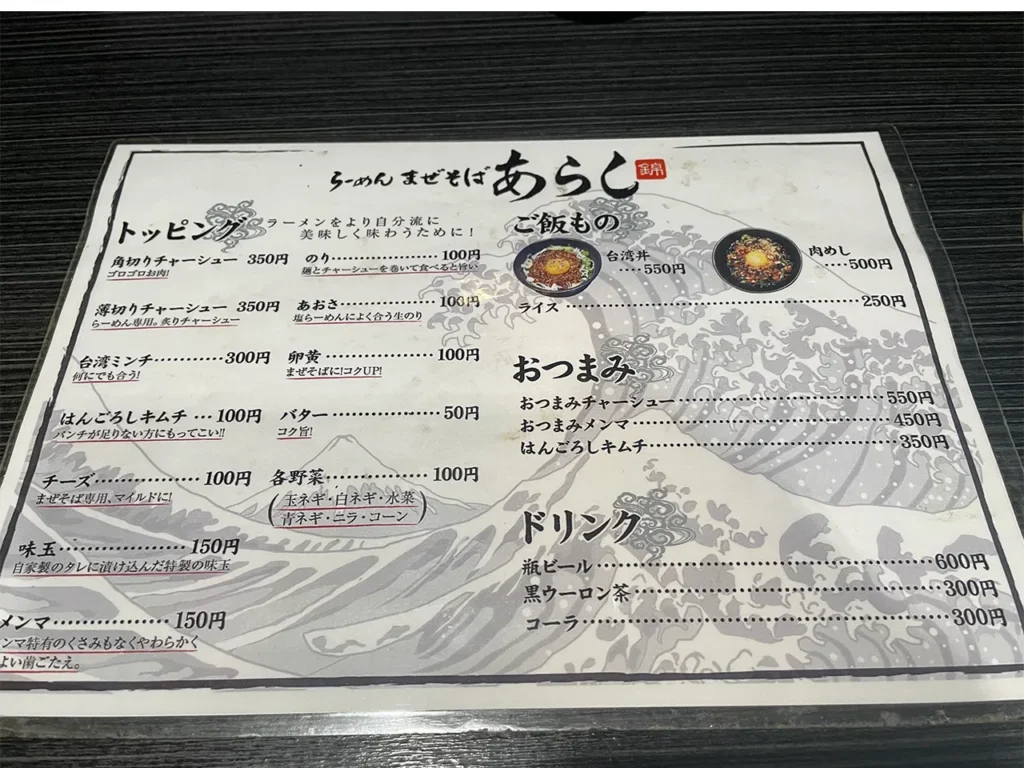 らーめん まぜそば あらし 錦
トッピング
ラーメンをより自分流に
美味しく味わうために！
角切りチャーシュー 350円
ゴロゴロお肉!
薄切りチャーシュー 350円
らーめん専用。炙りチャーシュー
台湾ミンチ………… 300円
何にでも合う!
はんごろしキムチ … 100円
パンチが足りない方にもってこい!!
チーズ………………… 100円
まぜそば専用、マイルドに!
味玉………………… 150円
自家製のタレに漬け込んだ特製の味玉
メンマ………………… 150円
ンマ特有のくさみもなくやわらかく
よい歯ごたえ。
のり………………… 100円
麺とチャーシューを巻いて食べると旨い
あおさ………………… 100円
塩らーめんによく合う生のり
卵黄………………… 100円
まぜそばに!コクUP!
バター………………… 50円
コク旨!
各野菜………………… 100円
(玉ネギ・白ネギ・水菜
青ネギ・ニラ・コーン)
ご飯もの
台湾丼
‥‥550円
肉めし
‥‥‥500円
ライス…………………………………… 250円
おつまみ
おつまみチャーシュー………………………… 550円
おつまみメンマ………………………… 450円
はんごろしキムチ………………………… 350円
ドリンク
瓶ビール………………………… 600円
黒ウーロン茶………………………… 300円
コーラ………………………… 300円